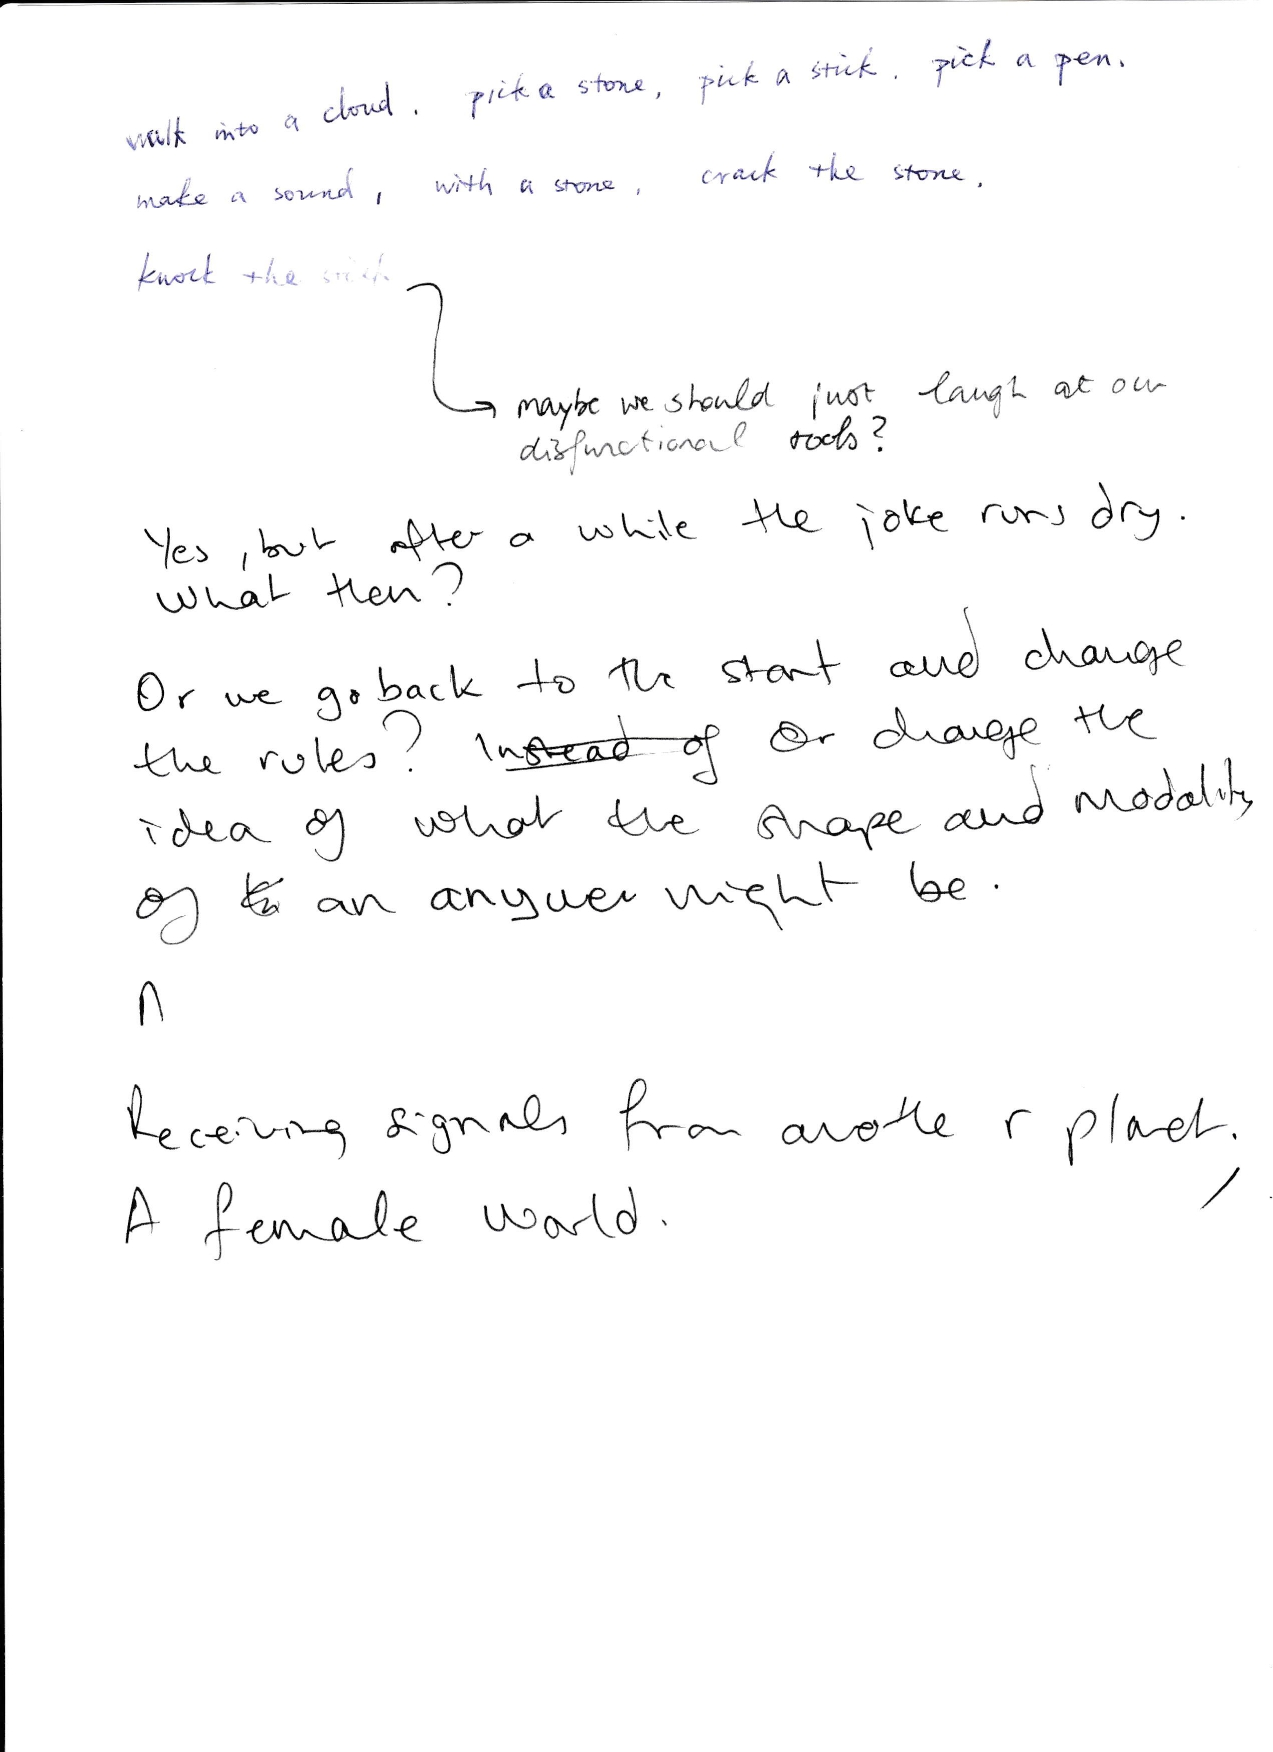 walk into a cloud. pick a stone, pick a stick. pick a pen.
make a sound, with a stone, crack the stone.
knock the stick
maybe we should just laugh at our
disfunctional tools?
Yes, but after a while the joke runs dry.
What then?
Or we go back to the start and change
the rules? Instead of Or change the
idea of what the shape and modality
of an anywer might be.
Receiving signals from another planet.
A female world.